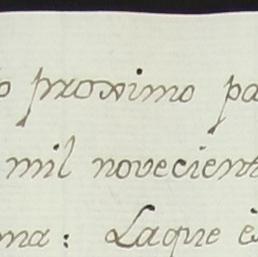 o proximo pa
mil novecient
ma: Laque è